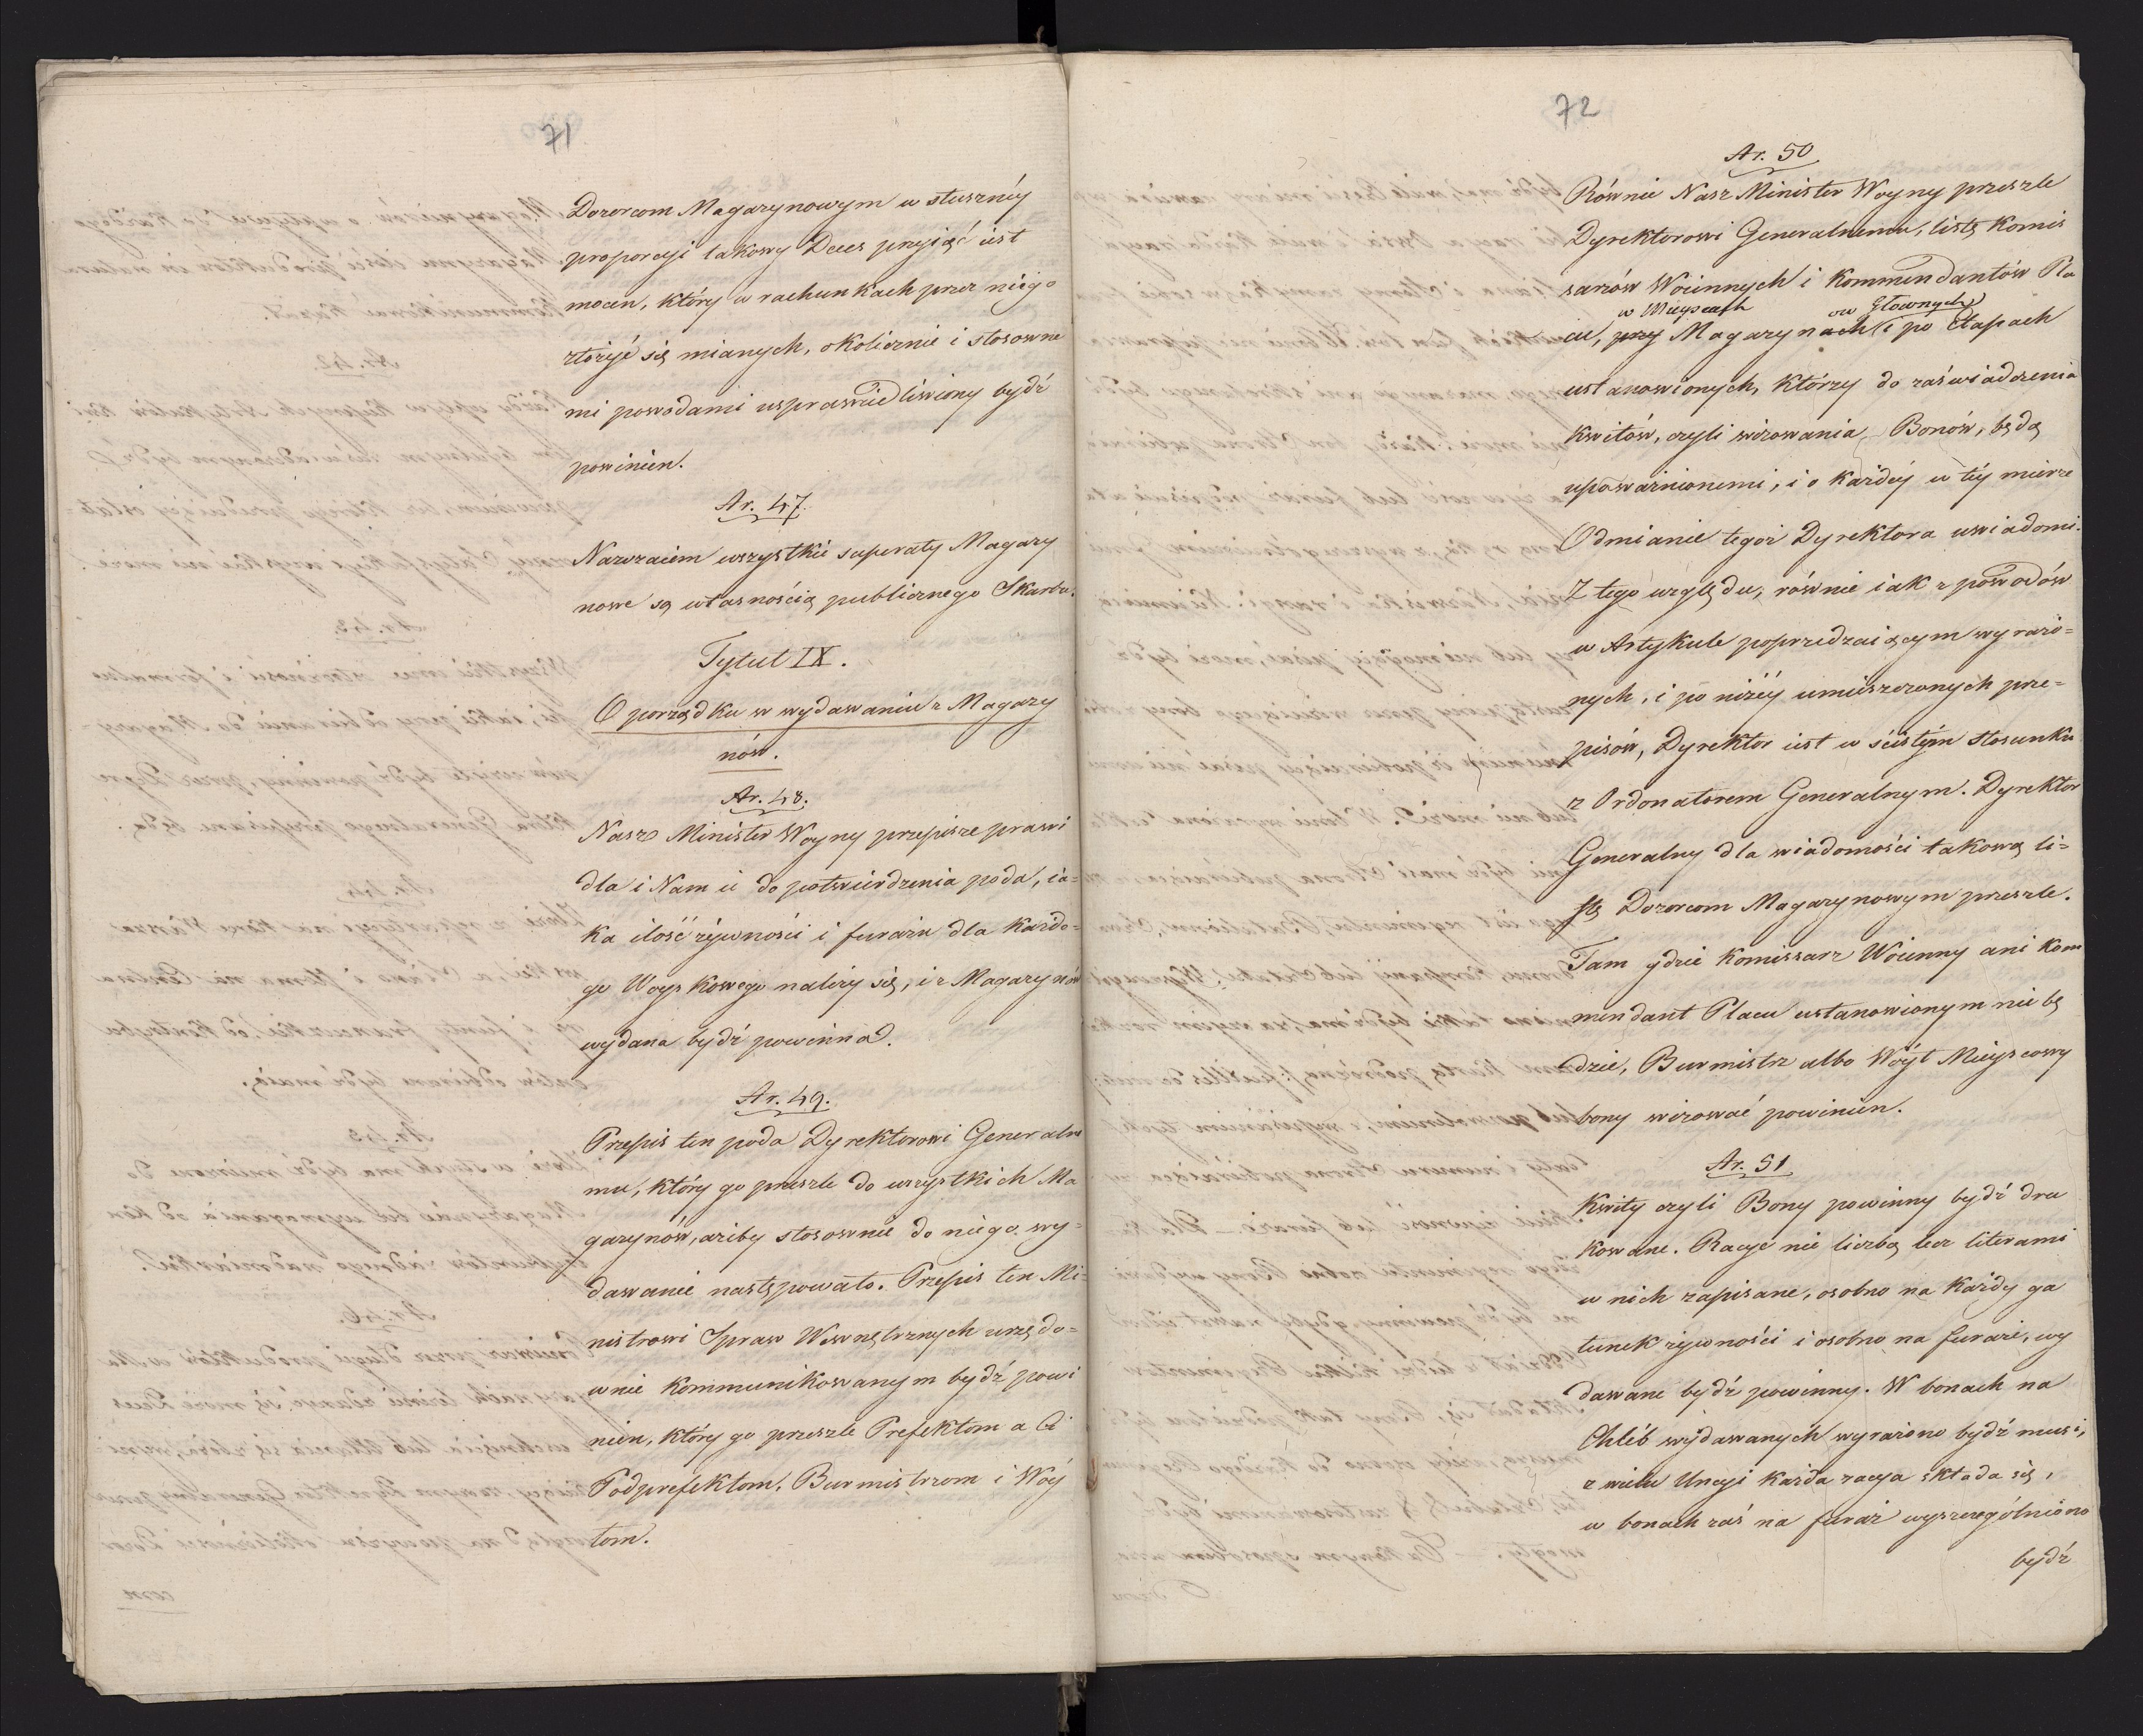 71
Dozorcom Magazynowym w słuszney
proporcyi takowy Deces przyiąć iest
mocen, który w rachunkach przez niego
złożyć się mianych, okolicznie i stosowne
mi powodami usprawiedliwiony bydź
powinien.
Ar. 47.
Nawzaiem wszystkie superaty Magazy
nowe są własnością publicznego Skarbu.
Tytuł IX.
O porządku w wydawaniu z Magazy
nów.
Ar. 48.
Nasz Minister Woyny przepisze prawi
dla i Nam ie do potwierdzenia poda, ia-
ka ilość żywności i furażu dla każde-
go Woyskowego należy się, i z Magazynów
wydana bydź powinna.
Ar. 49.
Przepis ten poda Dyrektorowi Generalne
mu, który go prześzle do wszystkich Ma
gazynów, ażeby stosownie do niego wy-
dawanie następowało. Przepis ten Mi-
nistrowi Spraw Wewnętrznych urzędo-
wnie kommunikowanym bydź powi
nien, który go prześzle Prefektom a Ci
Podprefektom, Burmistrzom i Wóy
tom.
72
Ar. 50
Równie Nasz Minister Woyny prześzle
Dyrektorowi Generalnemu, listę Komis
sarzów Woiennych i Kommendantów Pla
w Mieyscach ow Głownych
cu, przy Magazynach i po Etapach
ustanowionych, którzy do zaświadczenia
Kwitów, czyli wizowania Bonów, będą
upoważnionemi, i o każdéy w téy mierze
Odmianie tegoż Dyrektora uwiadomi.
Z tego względu, równie iak z powodów
w Artykule poprzedzaiącym wyrażo-
nych, i po niżéy umieszczonych prze-
pisów, Dyrektor iest w ścisłym stosunku
z Ordonatorem Generalnym. Dyrektor
Generalny dla wiadomości takową li-
stę Dozorcom Magazynowym prześzle.
Tam gdzie Komissarz Woienny ani Kom
mendant Placu ustanowionym nie bę
dzie, Burmistrz albo Wóyt Mieyscowy
bony wizować powinien.
Ar. 51
Kwity czyli Bony powinny bydź dru
kowane. Racye nie liczbą lecz literami
w nich zapisane, osobno na każdy ga
tunek żywności i osobno na furaże, wy
dawane bydź powinny. W bonach na
Chléb wydawanych wyrażono bydź musi,
z wielu Uncyi każda racya składa się,
w bonach zaś na furaż wyszczególniono
bydź